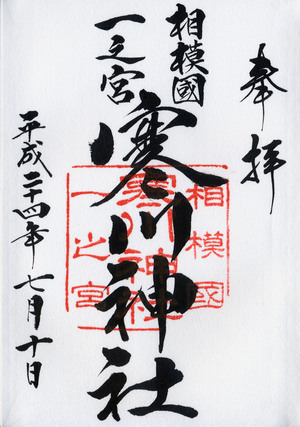 奉拝
相模國
一之宮
寒川神社
平成二十四年七月十日
相模國
寒川神社
一之宮